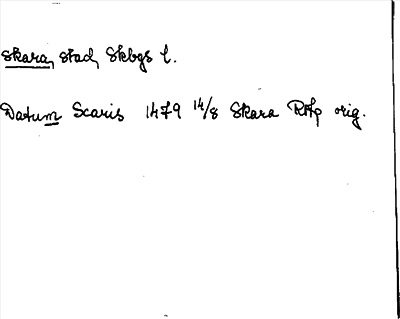 Skara, stad, Skbgs l.
Datum Scaris 1479 14/8 Skara RAp orig.